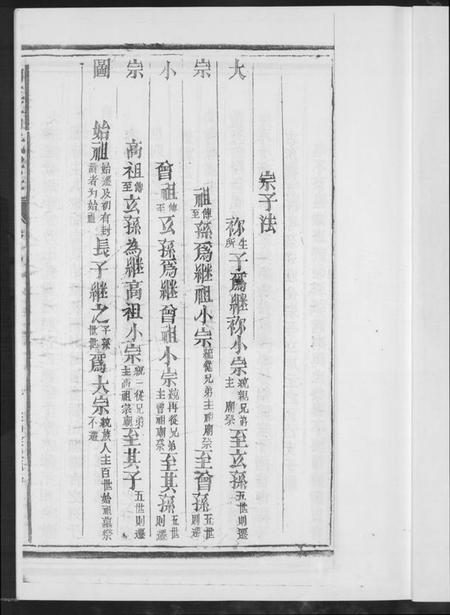 宗子法
大 祢所生子為継祢小宗統親兄弟主廟祭至玄孫五世則遷
宗 祖傳至孫為継祖小宗統從兄弟主祖廟祭至曾孫五世則遷
小 曾祖傳至玄孫為継曾祖小宗統再從兄弟主曾祖廟祭至其孫五世則遷
宗 高祖傳至玄孫為継高祖小宗統三從兄弟主高祖宗廟至其子五世則遷
圖 始祖始遷及初有封者為始祖長子継之子孫世世為大宗統族人主百世始祖墓祭不遷